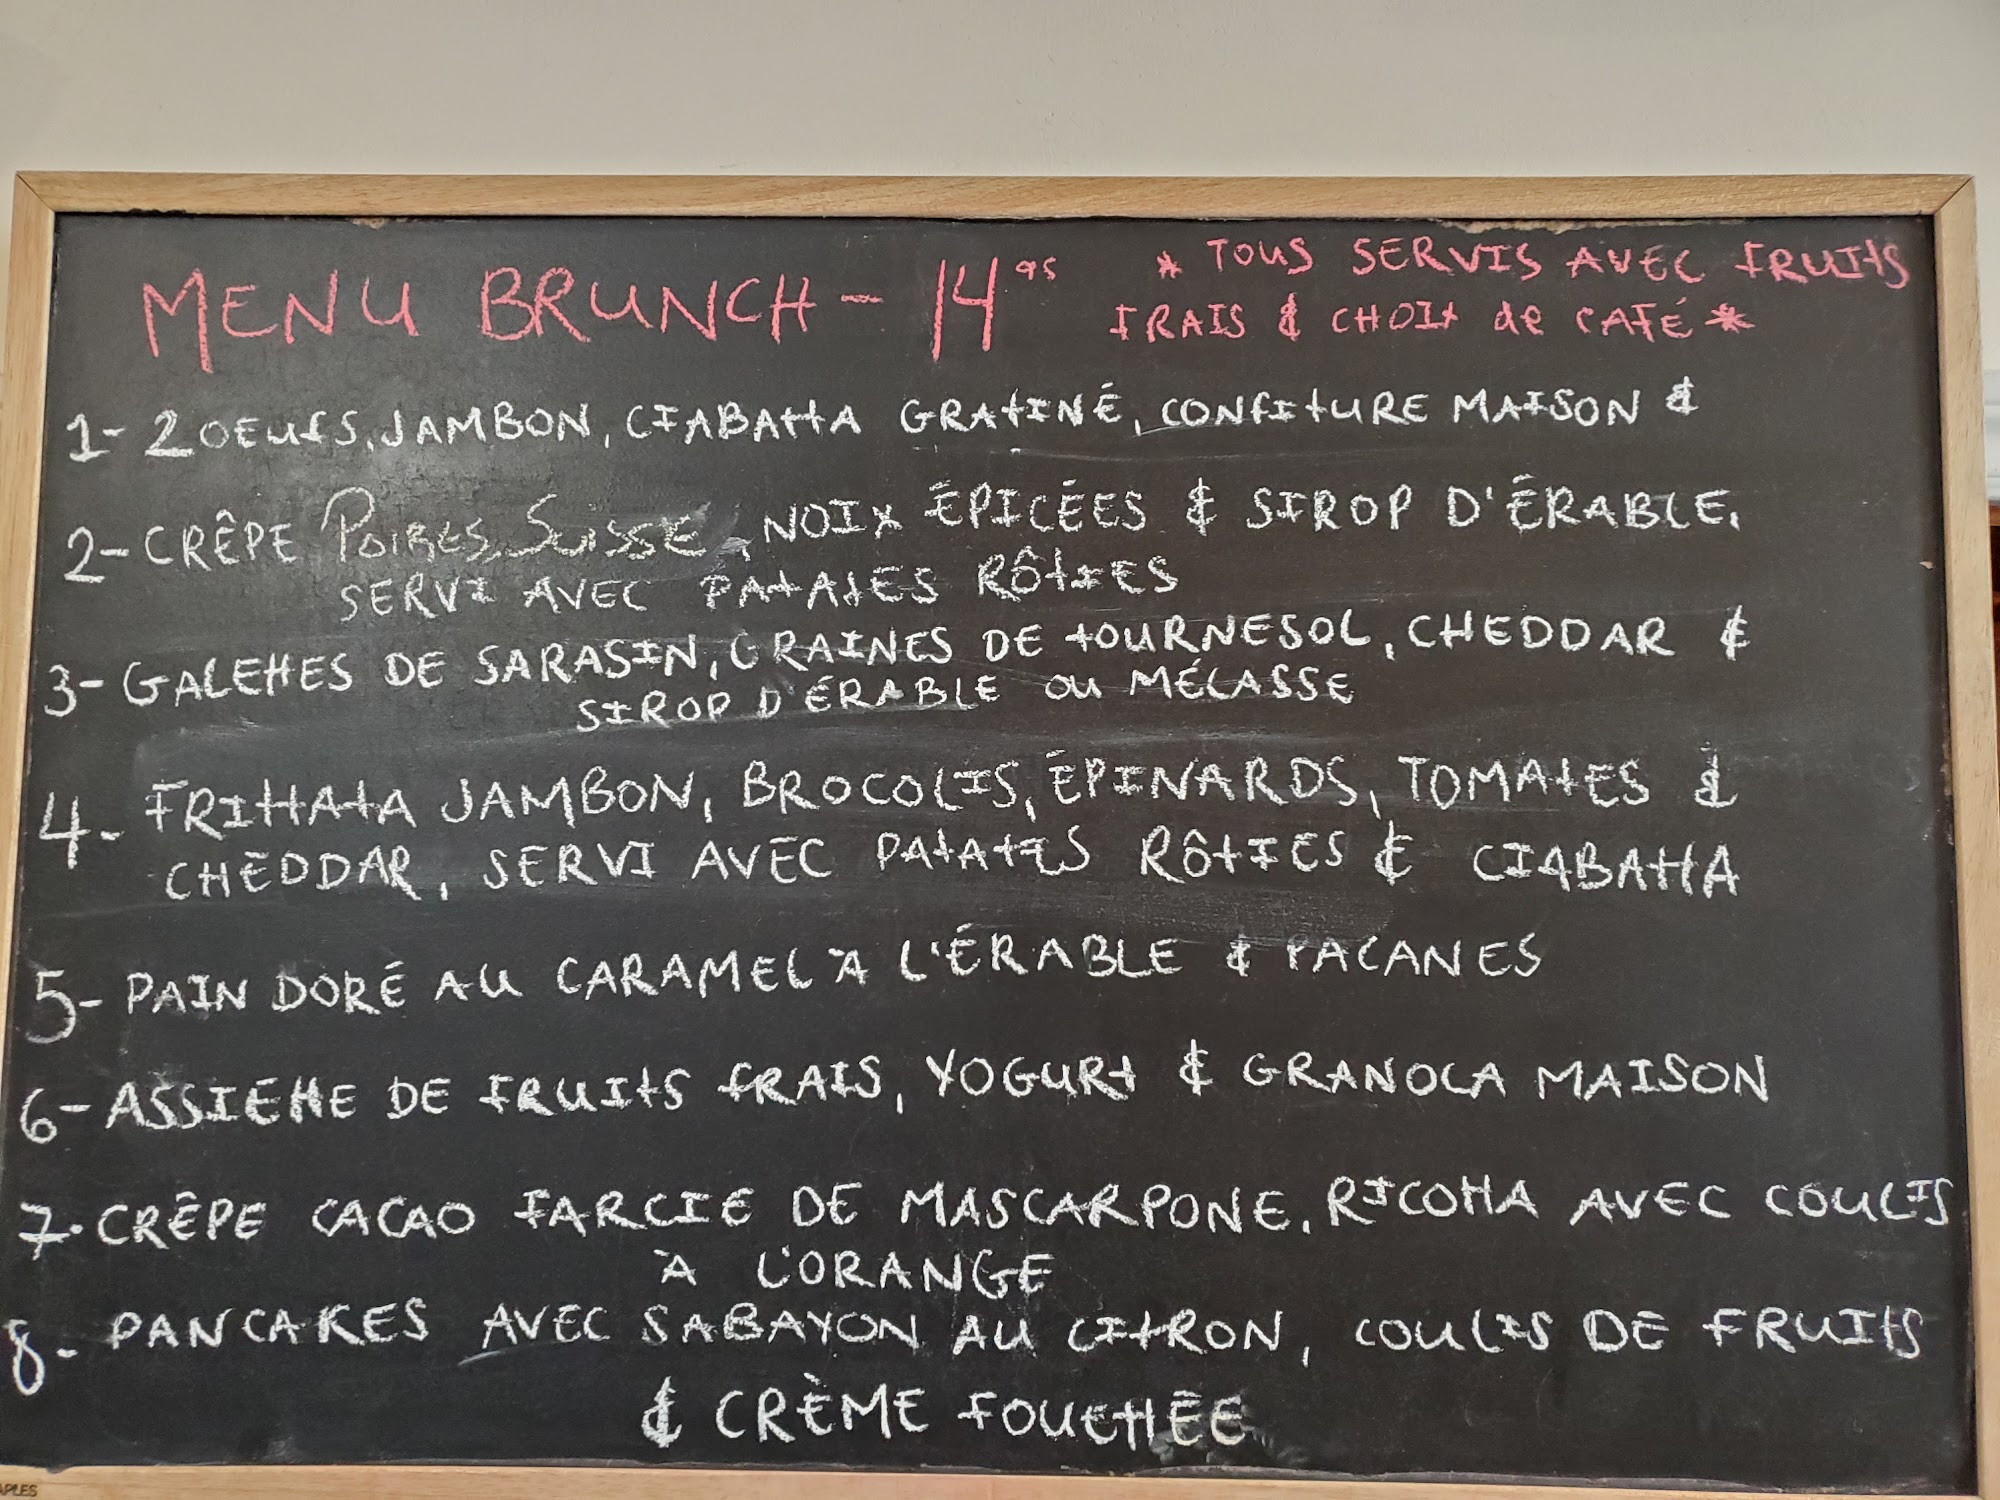 MENU BRUNCH - 14 95
* TOUS SERVIS AVEC FRUITS
FRAIS & CHOIX de CAFÉ *
1- 2 OEUFS, JAMBON, CIABATTA GRATINÉ, CONFITURE MAISON &
2- CRÊPE POIRES, SUISSE, NOIX ÉPICÉES & SIROP D'ÉRABLE.
SERVI AVEC PATATES RÔTIES
3- GALETTES DE SARASIN, GRAINES DE TOURNESOL, CHEDDAR &
SIROP D'ÉRABLE OU MÉLASSE
4- FRITTATA JAMBON, BROCOLIS, ÉPINARDS, TOMATES &
CHEDDAR, SERVI AVEC PATATES RÔTIES & CIABATTA
5- PAIN DORÉ AU CARAMEL À L'ÉRABLE & PACANES
6- ASSIETTE DE FRUITS FRAIS, YOGURT & GRANOLA MAISON
7- CRÊPE CACAO FARCIE DE MASCARPONE, RICOTTA AVEC COULIS
À L'ORANGE
8- PANCAKES AVEC SABAYON AU CITRON, COULIS DE FRUITS
& CRÈME FOUETTÉE